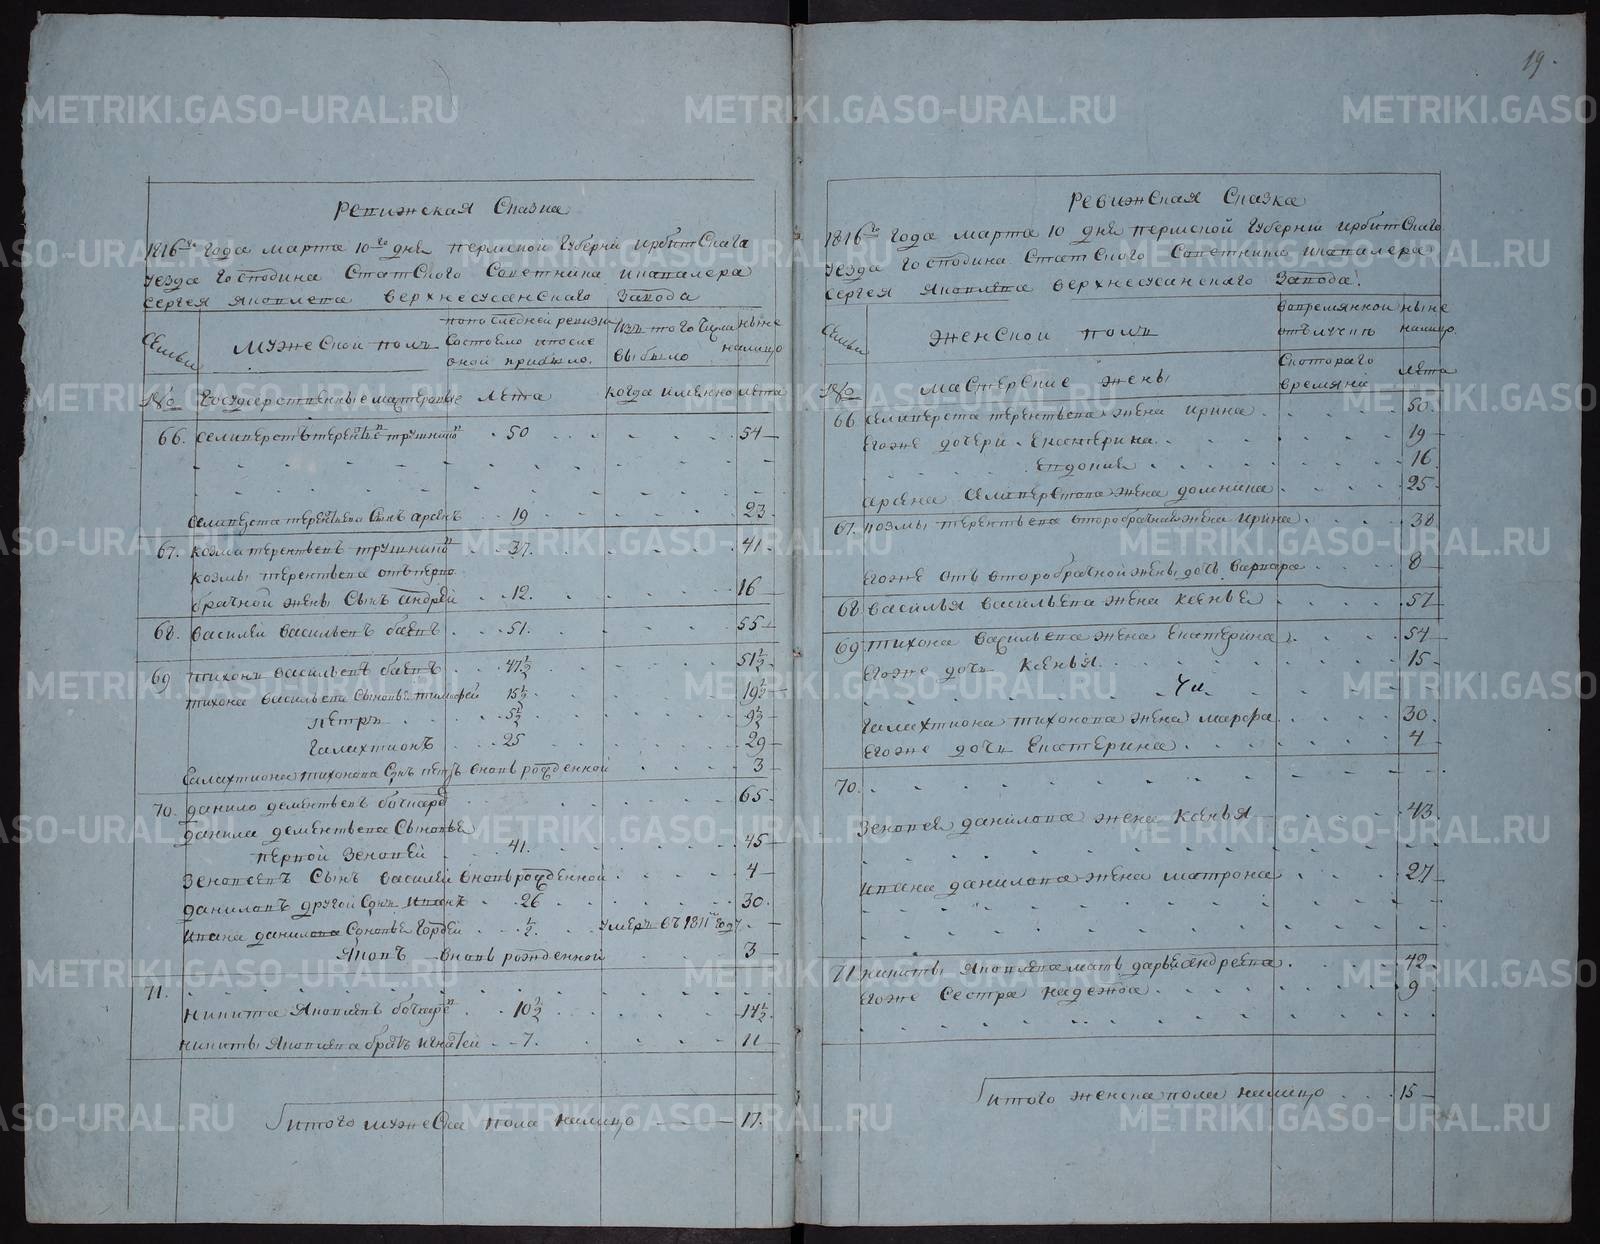 19.
Ревижская Сказка
1816го года марта 10го дня пермской Губернїи ирбитскаго
уезда Господина Статского Советника иковлева
Сергея Яковлева верхнесусанского Завода
Семьи
Мужеской полъ
попоследней ревизи
Состояло ипосле
оной прибыло.
Изъ того Числа
выбыло
ныне
налицо
№
Государственные мастеровые
Лета
когда именно
лета
66. Селиверстъ терентьевъ трушниковъ 50 54
Селиверста терентьева Сынъ арсенъ 19 23
67. козма терентьевъ трушниковъ 37. 41
козмы терентьева отъ перво
брачной жены Сынъ андрей 12. 16
68. василей васильевъ баевъ 51. 55
69 тихонъ васильевъ баевъ 47½ 51½
тихона васильева Сыновья тимофей 15½ 19½
петръ 5½ 9½
Галахтионъ 25 29
Галахтиона тихонова Сынъ петръ вновь рожденной 3
70. данило дементьевъ бочкаревъ 65
данила дементьева Сыновья
первой Зеновей 41. 45
Зеновеевъ Сынъ василей вновь рожденной 4
даниловъ другой Сынъ иванъ 26 30
ивана данилова Сыновья Гордей ½. умеръ въ 1811м году
Яковъ вновь рожденной 3
71.
никита Яковлевъ бочкаревъ 10½ 14½
никиты Яковлева братъ игнатей 7. 11
итого мужеска пола налицо 17.
Ревижская Сказка
1816го года марта 10 дня пермской Губернїи ирбитскаго
уезда Господина Статского Советника иковлева
Сергея Яковлева верхнесусанского Завода.
Семьи
женской полъ
вовременной
отлучке
ныне
налицо.
№
мастерские жены
Скотораго
времяни
лета
66 Селиверста терентьева жена ирина 50.
Егоже дочери Екатерина 19
Евдокия 16
арсена Селиверстова жена домнина 25
67. козмы терентьева второбрачная жена ирина 38
Егоже отъ второбрачной жены дочь варвара 8
68 василья васильева жена ксенья 57
69 тихона васильева жена Екатерина 54
Егоже дочь ксенья 15
Галахтиона тихонова жена марфа 30.
Егоже дочь Екатерина 4
70.
Зеновея данилова жена ксенья 43
ивана данилова жена матрона 27
71 никиты Яковлева мать дарья андреева 42
Егоже Сестра надежда 9
итого женска пола налицо 15
METRIKI.GASO-URAL.RU